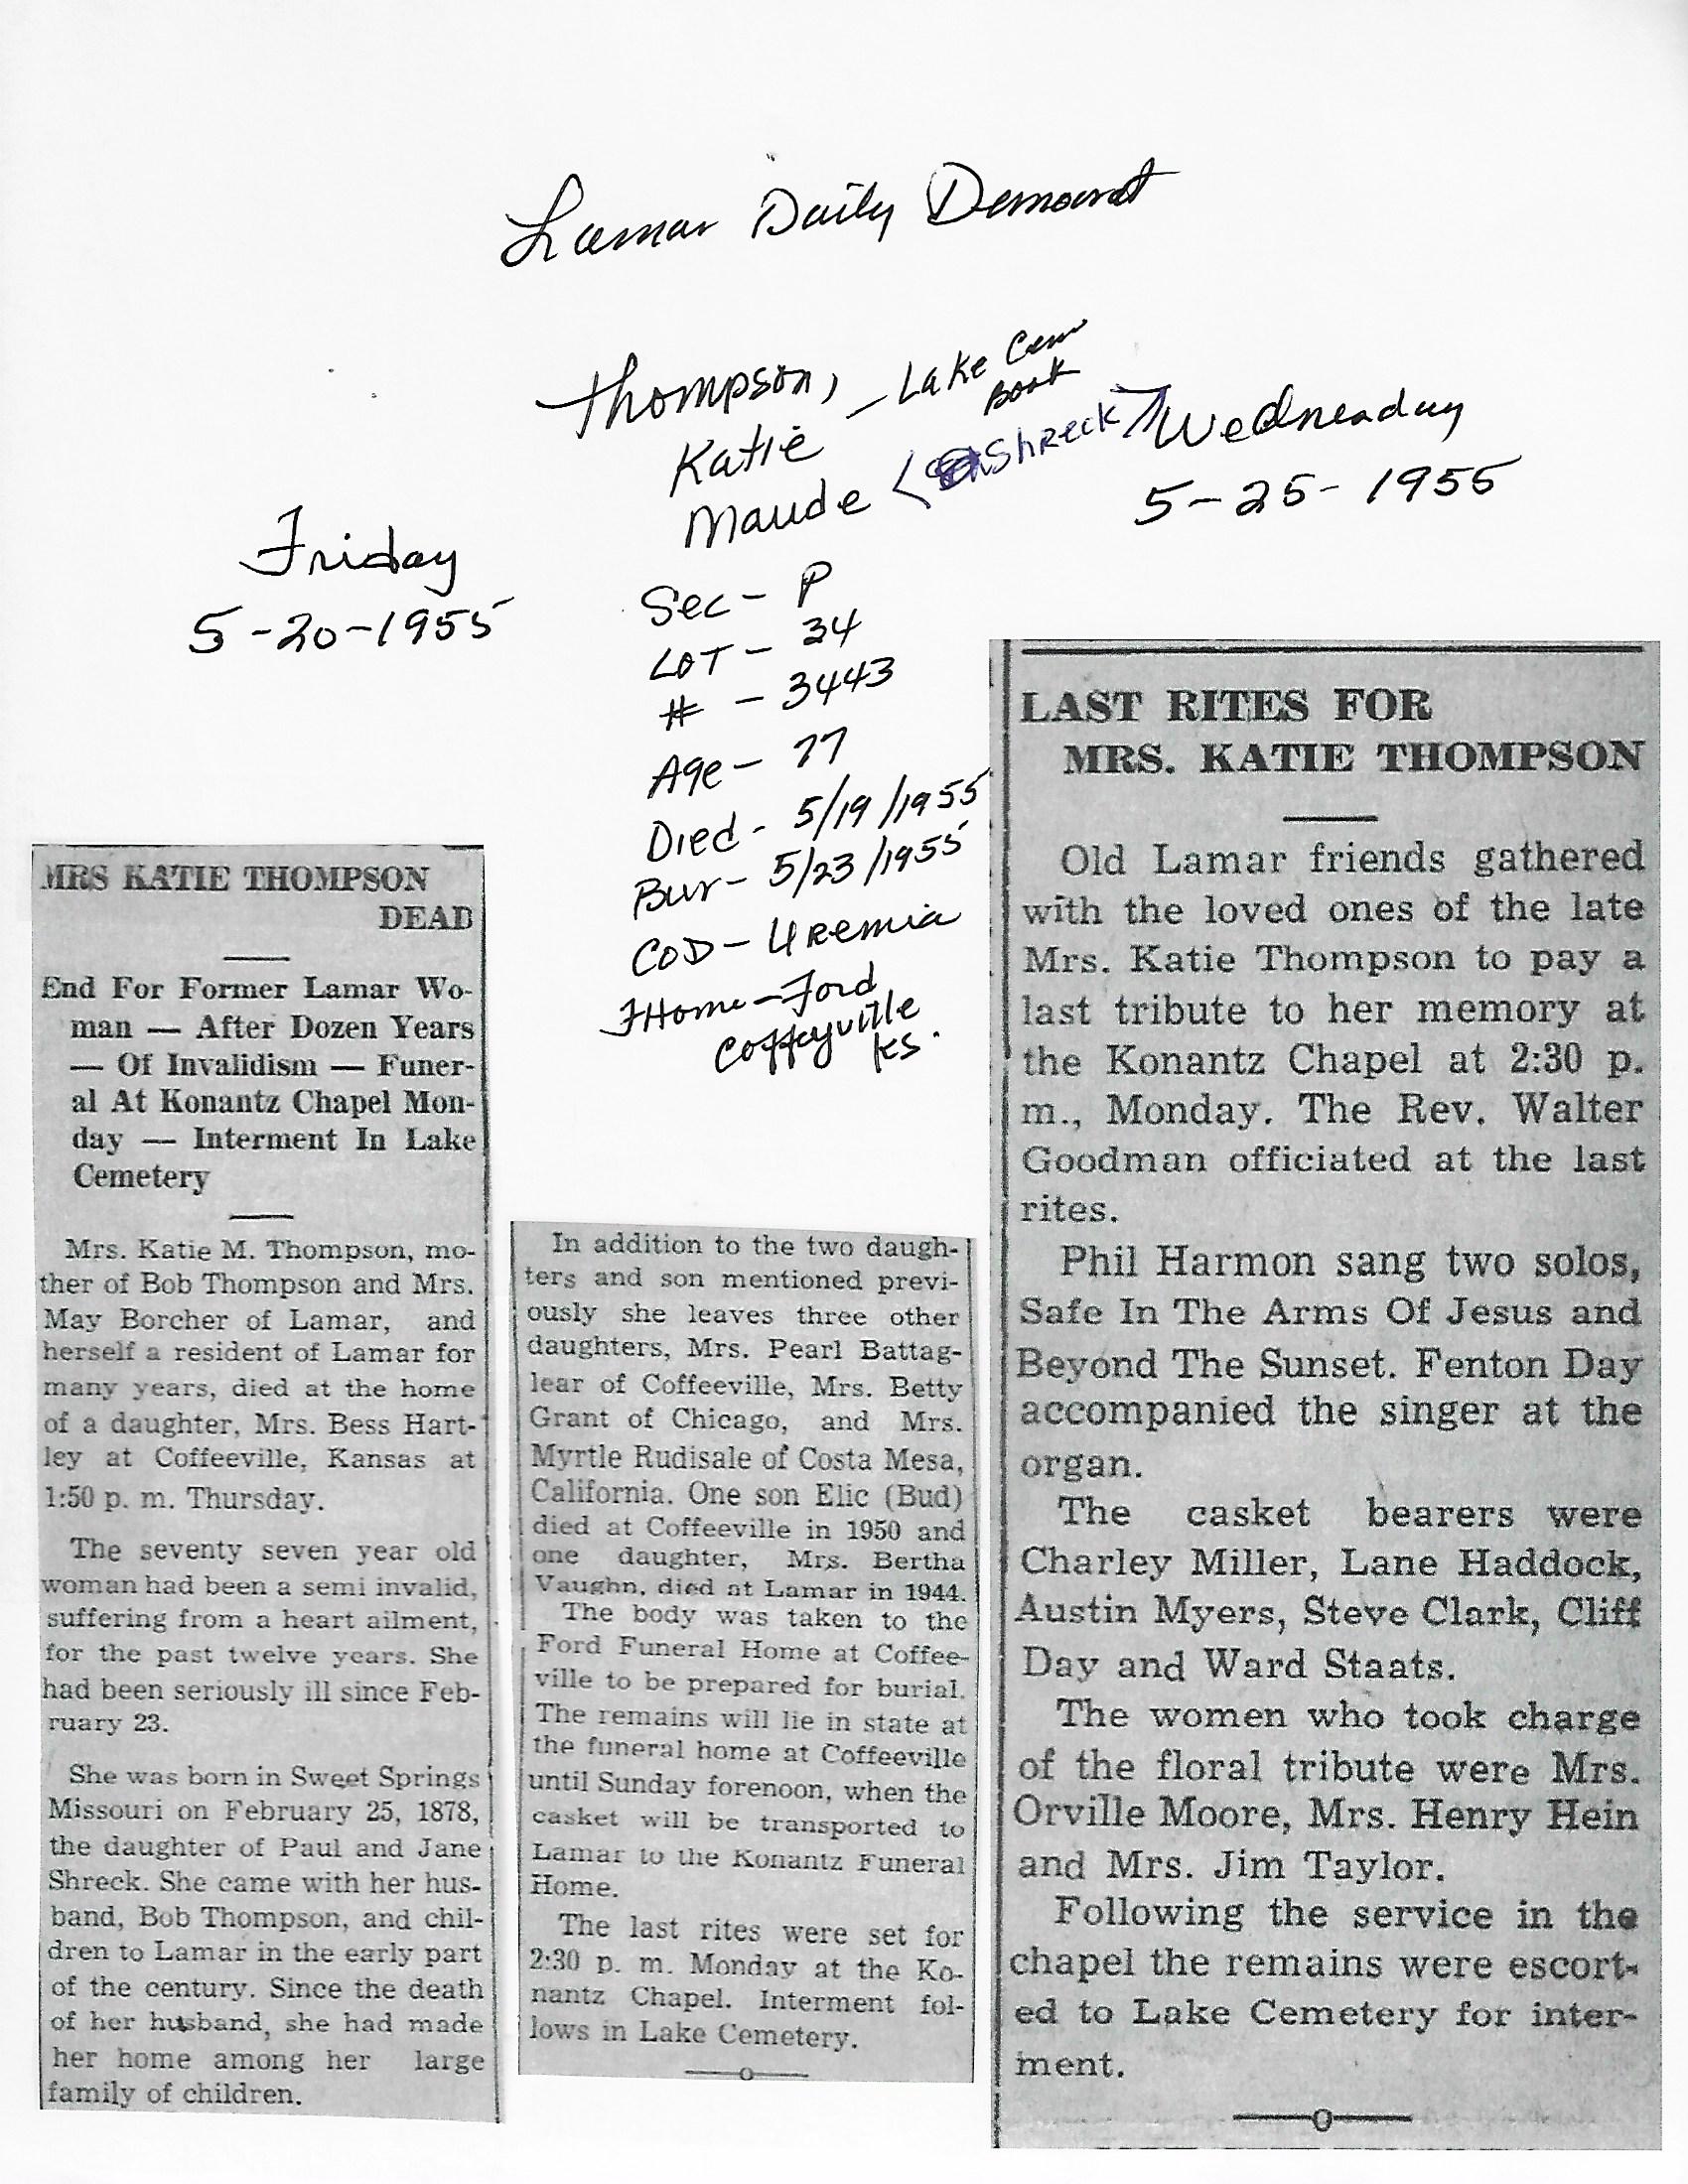 Lamar Daily Democrat
Thompson, - Lake Cem
Book
Katie
Maude <Shreck>
Sec - P
LOT - 34
# - 3443
Age - 77
Died - 5/19/1955
Bur - 5/23/1955
COD - Uremia
FHome - Ford
Coffeyville
Ks.
Friday
5-20-1955
MRS KATIE THOMPSON
DEAD
End For Former Lamar Wo-
man — After Dozen Years
— Of Invalidism — Funer-
al At Konantz Chapel Mon-
day — Interment In Lake
Cemetery
Mrs. Katie M. Thompson, mo-
ther of Bob Thompson and Mrs.
May Borcher of Lamar, and
herself a resident of Lamar for
many years, died at the home
of a daughter, Mrs. Bess Hart-
ley at Coffeeville, Kansas at
1:50 p. m. Thursday.
The seventy seven year old
woman had been a semi invalid,
suffering from a heart ailment,
for the past twelve years. She
had been seriously ill since Feb-
ruary 23.
She was born in Sweet Springs
Missouri on February 25, 1878,
the daughter of Paul and Jane
Shreck. She came with her hus-
band, Bob Thompson, and chil-
dren to Lamar in the early part
of the century. Since the death
of her husband, she had made
her home among her large
family of children.
In addition to the two daugh-
ters and son mentioned previ-
ously she leaves three other
daughters, Mrs. Pearl Battag-
lear of Coffeeville, Mrs. Betty
Grant of Chicago, and Mrs.
Myrtle Rudisale of Costa Mesa,
California. One son Elic (Bud)
died at Coffeeville in 1950 and
one daughter, Mrs. Bertha
Vaughn, died at Lamar in 1944.
The body was taken to the
Ford Funeral Home at Coffee-
ville to be prepared for burial.
The remains will lie in state at
the funeral home at Coffeeville
until Sunday forenoon, when the
casket will be transported to
Lamar to the Konantz Funeral
Home.
The last rites were set for
2:30 p. m. Monday at the Ko-
nantz Chapel. Interment fol-
lows in Lake Cemetery.
Wednesday
5-25-1955
LAST RITES FOR
MRS. KATIE THOMPSON
Old Lamar friends gathered
with the loved ones of the late
Mrs. Katie Thompson to pay a
last tribute to her memory at
the Konantz Chapel at 2:30 p.
m., Monday. The Rev. Walter
Goodman officiated at the last
rites.
Phil Harmon sang two solos,
Safe In The Arms Of Jesus and
Beyond The Sunset. Fenton Day
accompanied the singer at the
organ.
The casket bearers were
Charley Miller, Lane Haddock,
Austin Myers, Steve Clark, Cliff
Day and Ward Staats.
The women who took charge
of the floral tribute were Mrs.
Orville Moore, Mrs. Henry Hein
and Mrs. Jim Taylor.
Following the service in the
chapel the remains were escort-
ed to Lake Cemetery for inter-
ment.